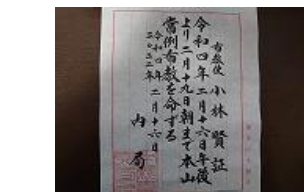 布教使 小林賢証
令和四年二月十六日午後
より二月十九日朝まで本山
常例布教を命ずる
令和四年
二〇二二年 二月十六日
内局